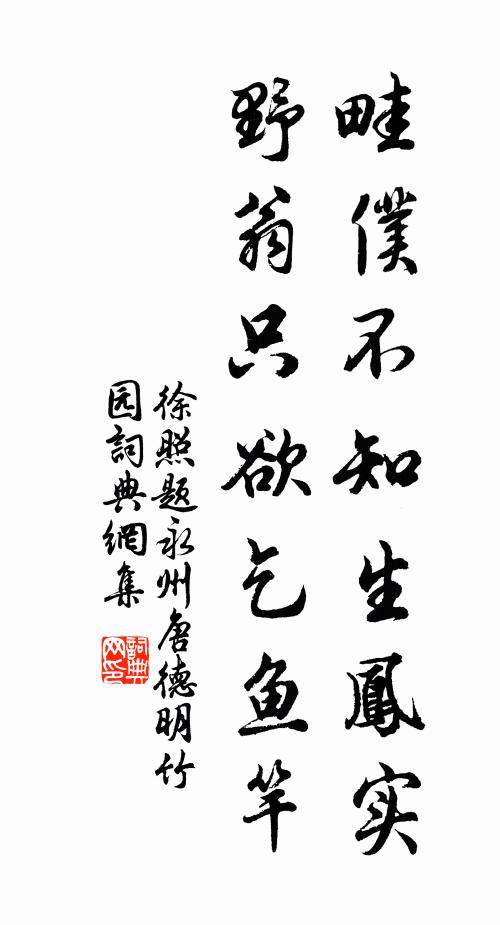 畦僕不知生鳳实
野翁只欲乞鱼竿
徐照题永州唐德明竹
园詞典網集
詞典
网印